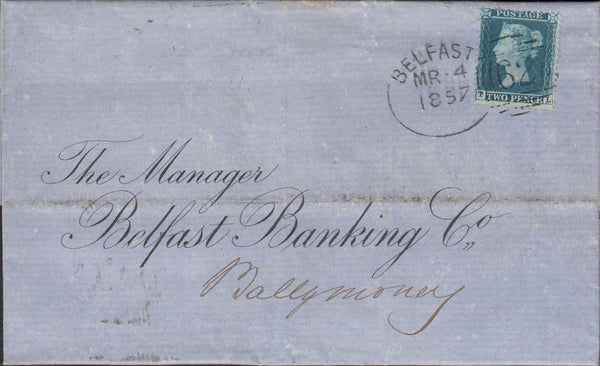 POSTAGE
TWO PENCE
T L
BELFAST
MR-4
1857
62
The Manager
Belfast Banking Co.
Ballymoney